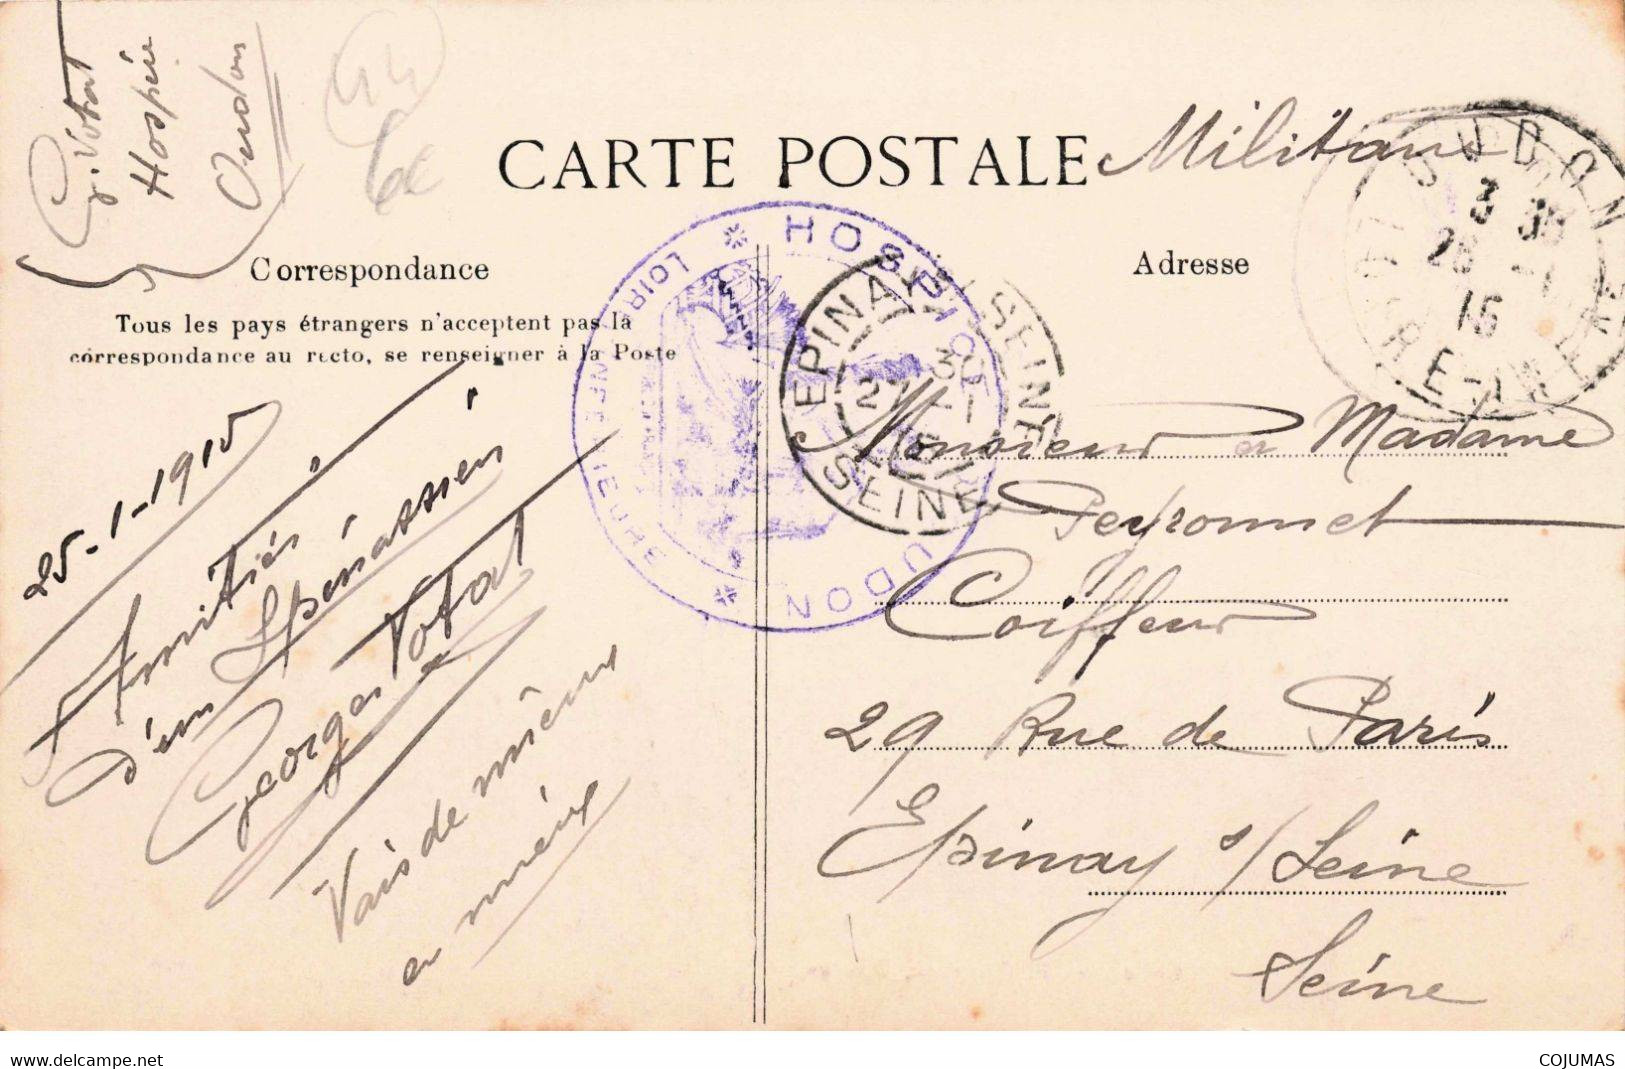 G. Votat
Hospice
Oudon
44
6€
CARTE POSTALE
Militaire
OUDON
3 35
26 -1
15
LOIRE-INFRE
Correspondance
Adresse
Tous les pays étrangers n'acceptent pas la
correspondance au recto, se renseigner à la Poste
HOSPICE
OUDON
LOIRE INFÉRIEURE
EPINAY S/SEINE
SEINE
25-1-1915
Amitiés
d'un Spinassien
Georges Votat
Vais de mieux
en mieux
Monsieur et Madame
Peyronnet
Coiffeur
29 Rue de Paris
Epinay s/Seine
Seine
www.delcampe.net
COJUMAS